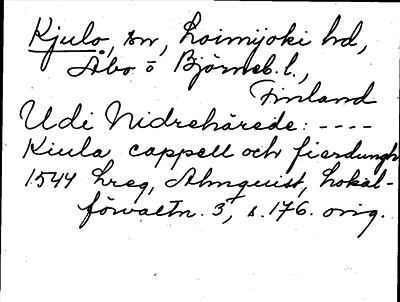 Kjulo, sn, Loimijoki hd,
Åbo o Björneb. l.,
Finland
Udi Nidrehärede: ----
Kiula cappell och fierdungh
1544 Lreg, Almquist, Lokal-
förvaltn. 3, s. 176. orig.